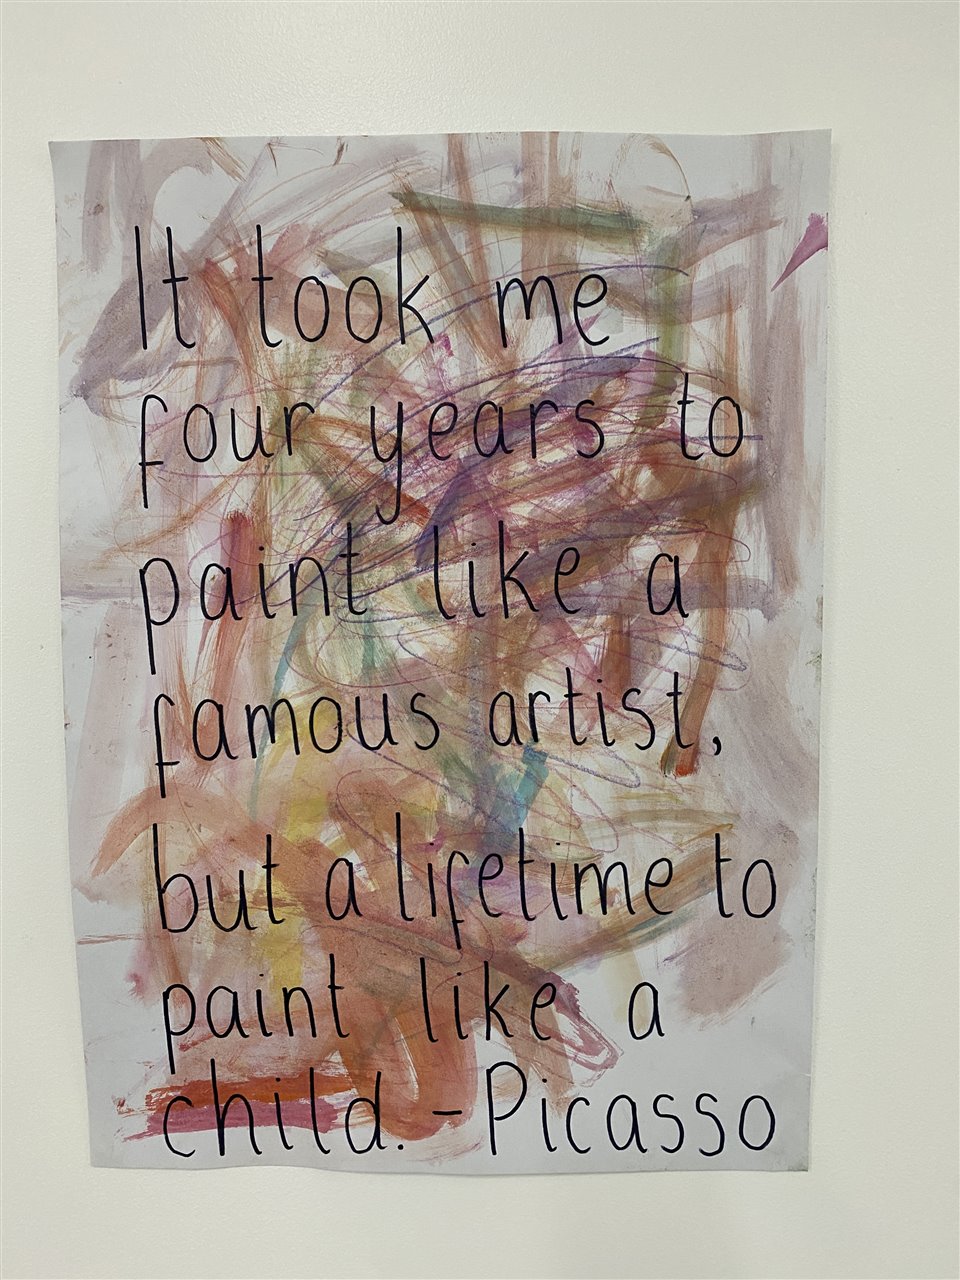 It took me
four years to
paint like a
famous artist,
but a lifetime to
paint like a
child. - Picasso